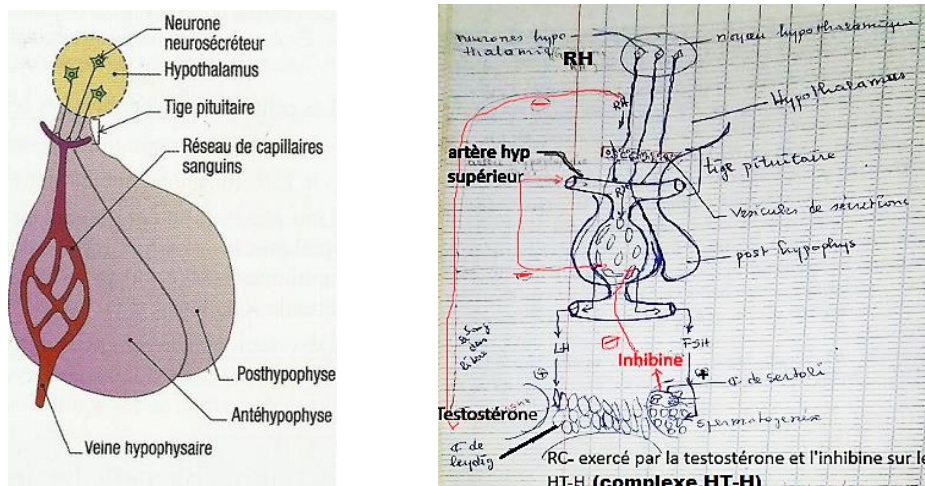 Neurone
neurosécréteur
Hypothalamus
Tige pituitaire
Réseau de capillaires
sanguins
Posthypophyse
Antéhypophyse
Veine hypophysaire
neurones hypo
thalamiq
RH
noyau hypothalamique
RH
Hypothalamus
artère hyp
supérieur
tige pituitaire
RH
Vesicules de sécrétions
post hypophys
sang
LH
FSH
Inhibine
⊕
+
σ de sertoli
Testostérone
spermatogenèse
σ de
leydig
RC- exercé par la testostérone et l'inhibine sur le
HT-H (complexe HT-H)